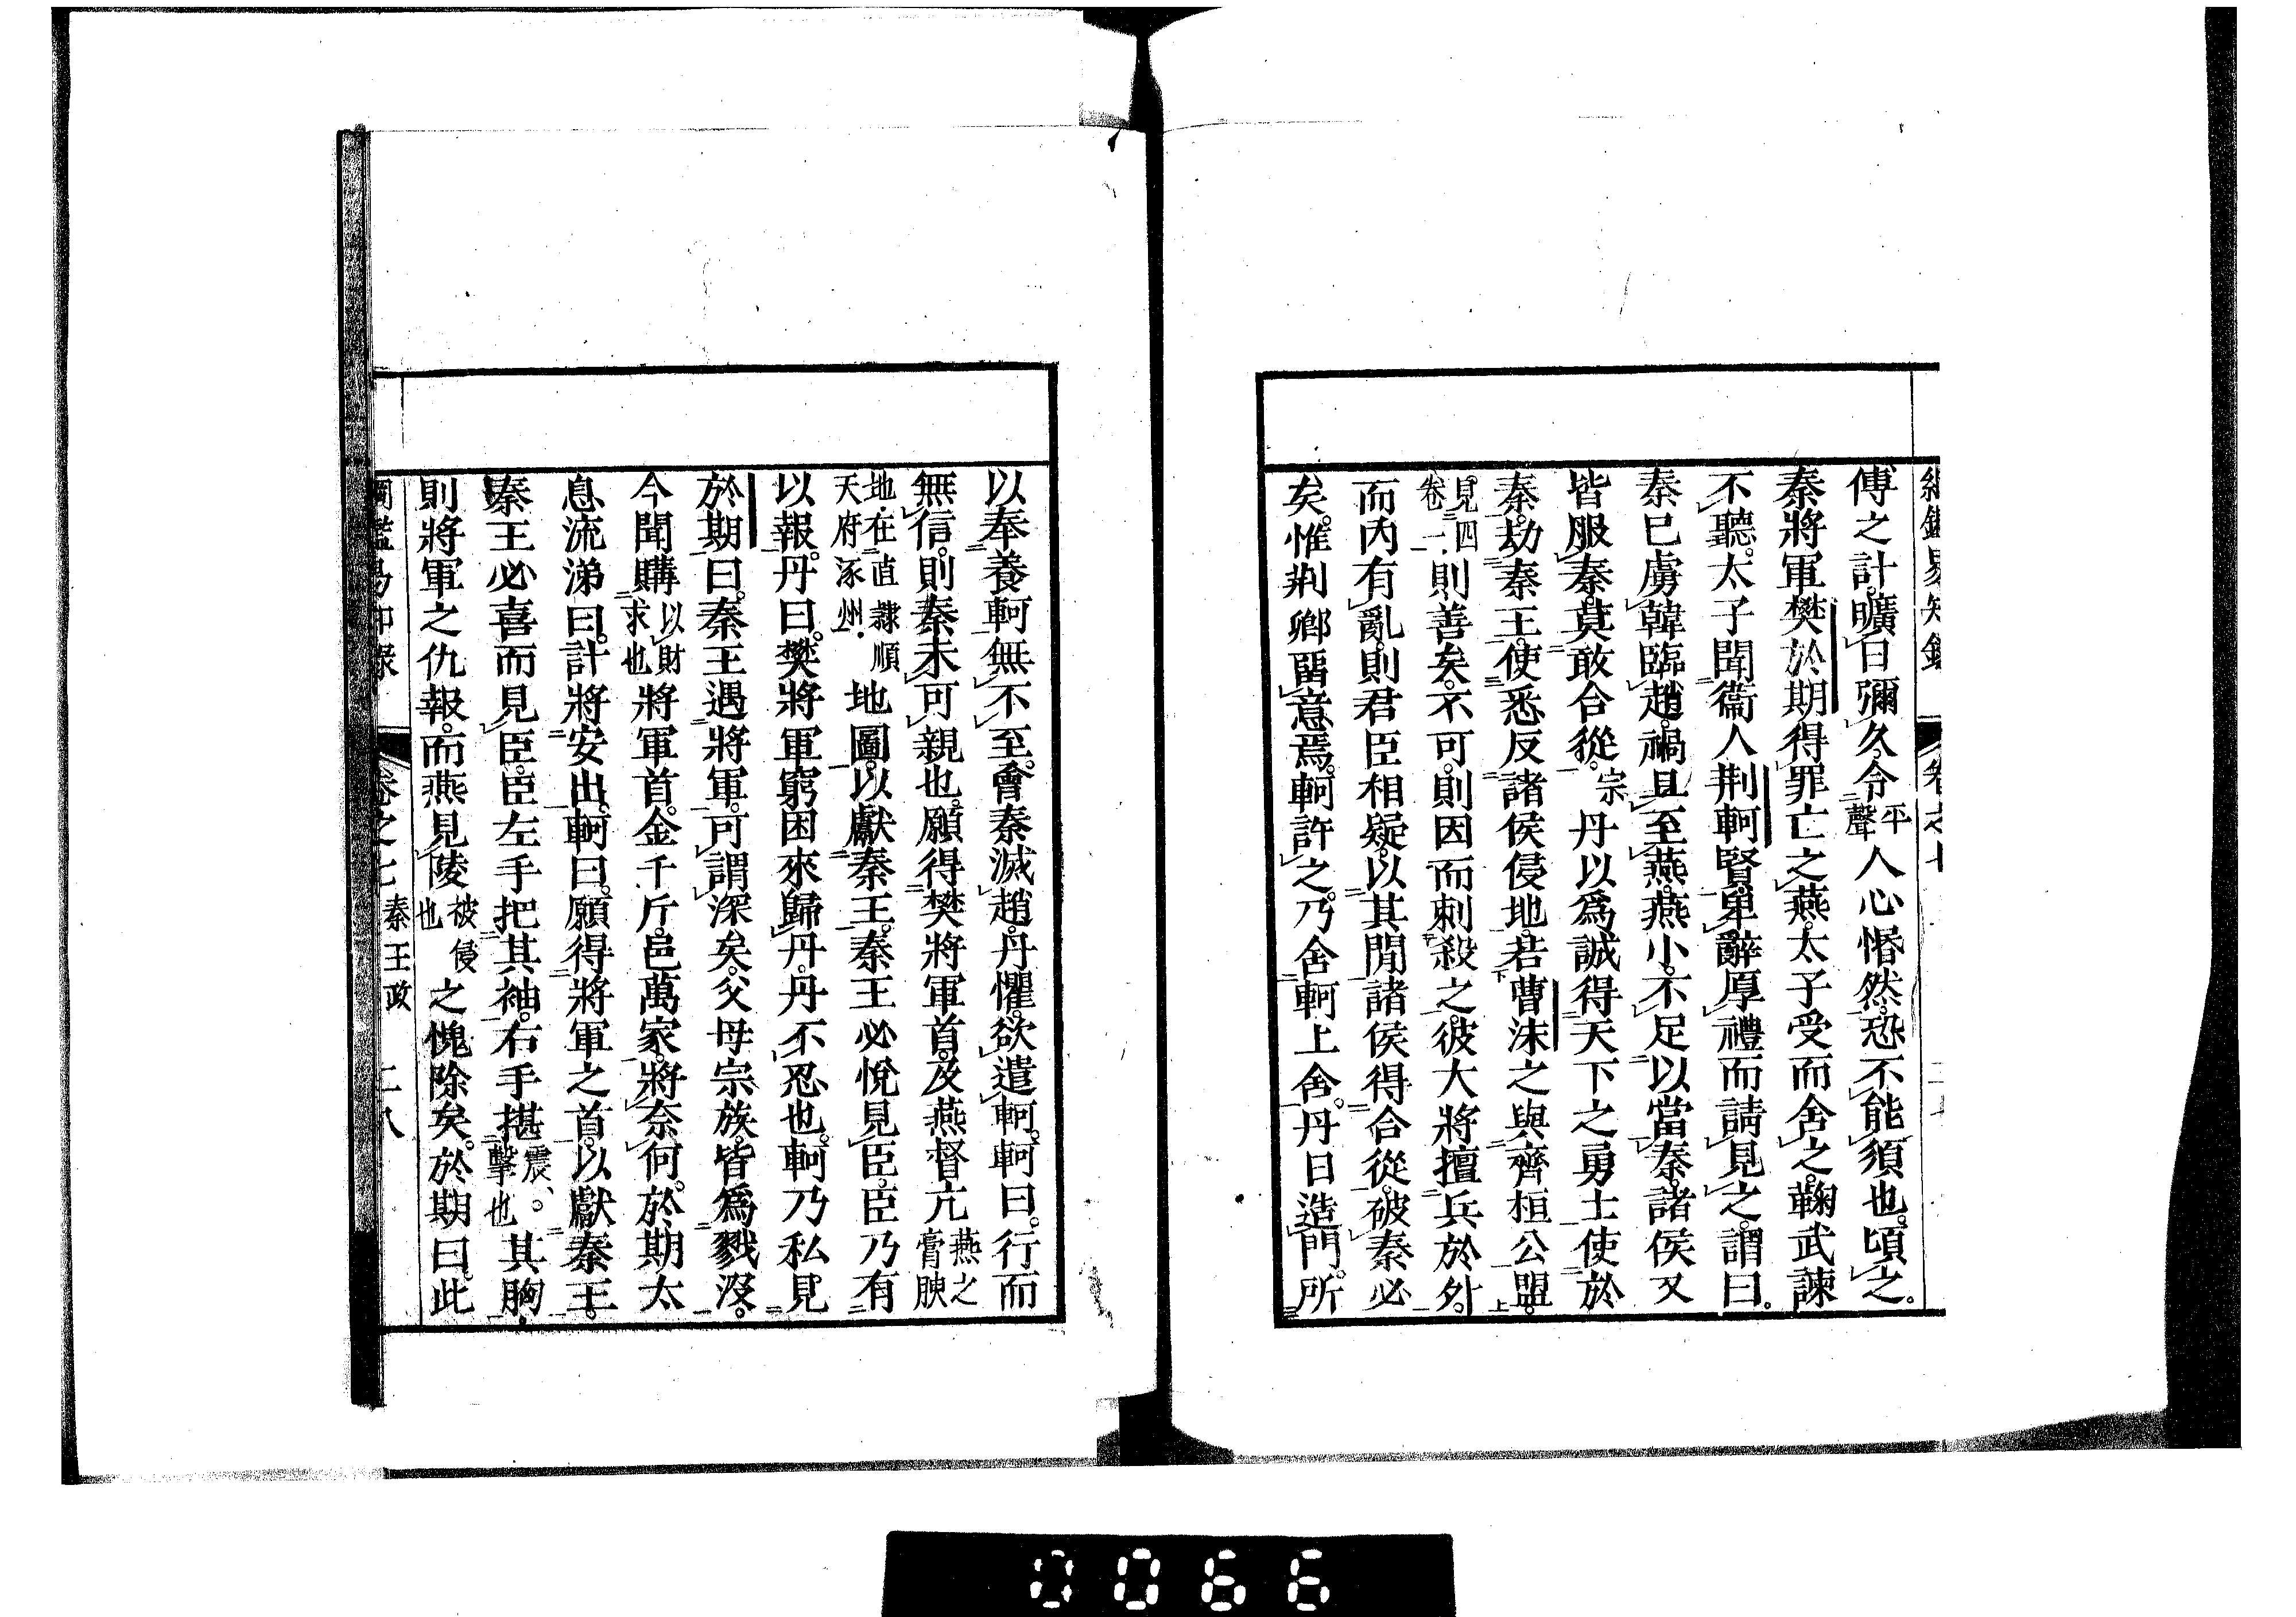 綱鑑易知錄 卷之七
傅之計。曠日彌久。令平聲人心惛然。恐不能須也。頃之。
秦將軍樊於期得罪亡之燕。太子受而舍之。鞠武諫
不聽。太子聞衞人荆軻賢。卑辭厚禮而請見之。謂曰。
秦已虜韓臨趙。禍且至燕。燕小。不足以當秦。諸侯又
皆服秦。莫敢合從。宗丹以爲誠得天下之勇士使於
秦。劫秦王。使悉反諸侯侵地。若曹沫之與齊桓公盟。
見四卷二則善矣。不可。則因而刺殺之。彼大將擅兵於外。
而內有亂。則君臣相疑。以其閒諸侯得合從。破秦必
矣。惟荆卿留意焉。軻許之。乃舍軻上舍。丹日造門。所
以奉養軻無不至。會秦滅趙。丹懼。欲遣軻。軻曰。行而
無信。則秦未可親也。願得樊將軍首。及燕督亢燕之膏腴
地。在直隸順天府涿州。地圖。以獻秦王。秦王必悅見臣。臣乃有
以報。丹曰。樊將軍窮困來歸丹。丹不忍也。軻乃私見
於期曰。秦王遇將軍。可謂深矣。父母宗族。皆爲戮沒。
今聞購以財求也將軍首。金千斤。邑萬家。將奈何。於期太
息流涕曰。計將安出。軻曰。願得將軍之首。以獻秦王。
秦王必喜而見臣。臣左手把其袖。右手揕震、。擊也其胸。
則將軍之仇報。而燕見陵被侵也之愧除矣。於期曰。此
綱鑑易知錄 卷之七 秦王政 二八
0066